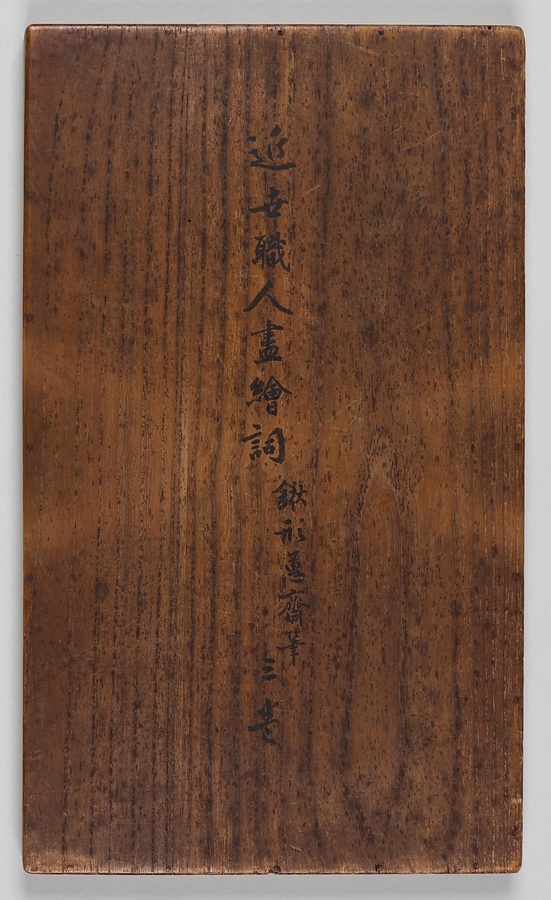 近世職人盡繪詞
鍬形蕙齋筆
三巻